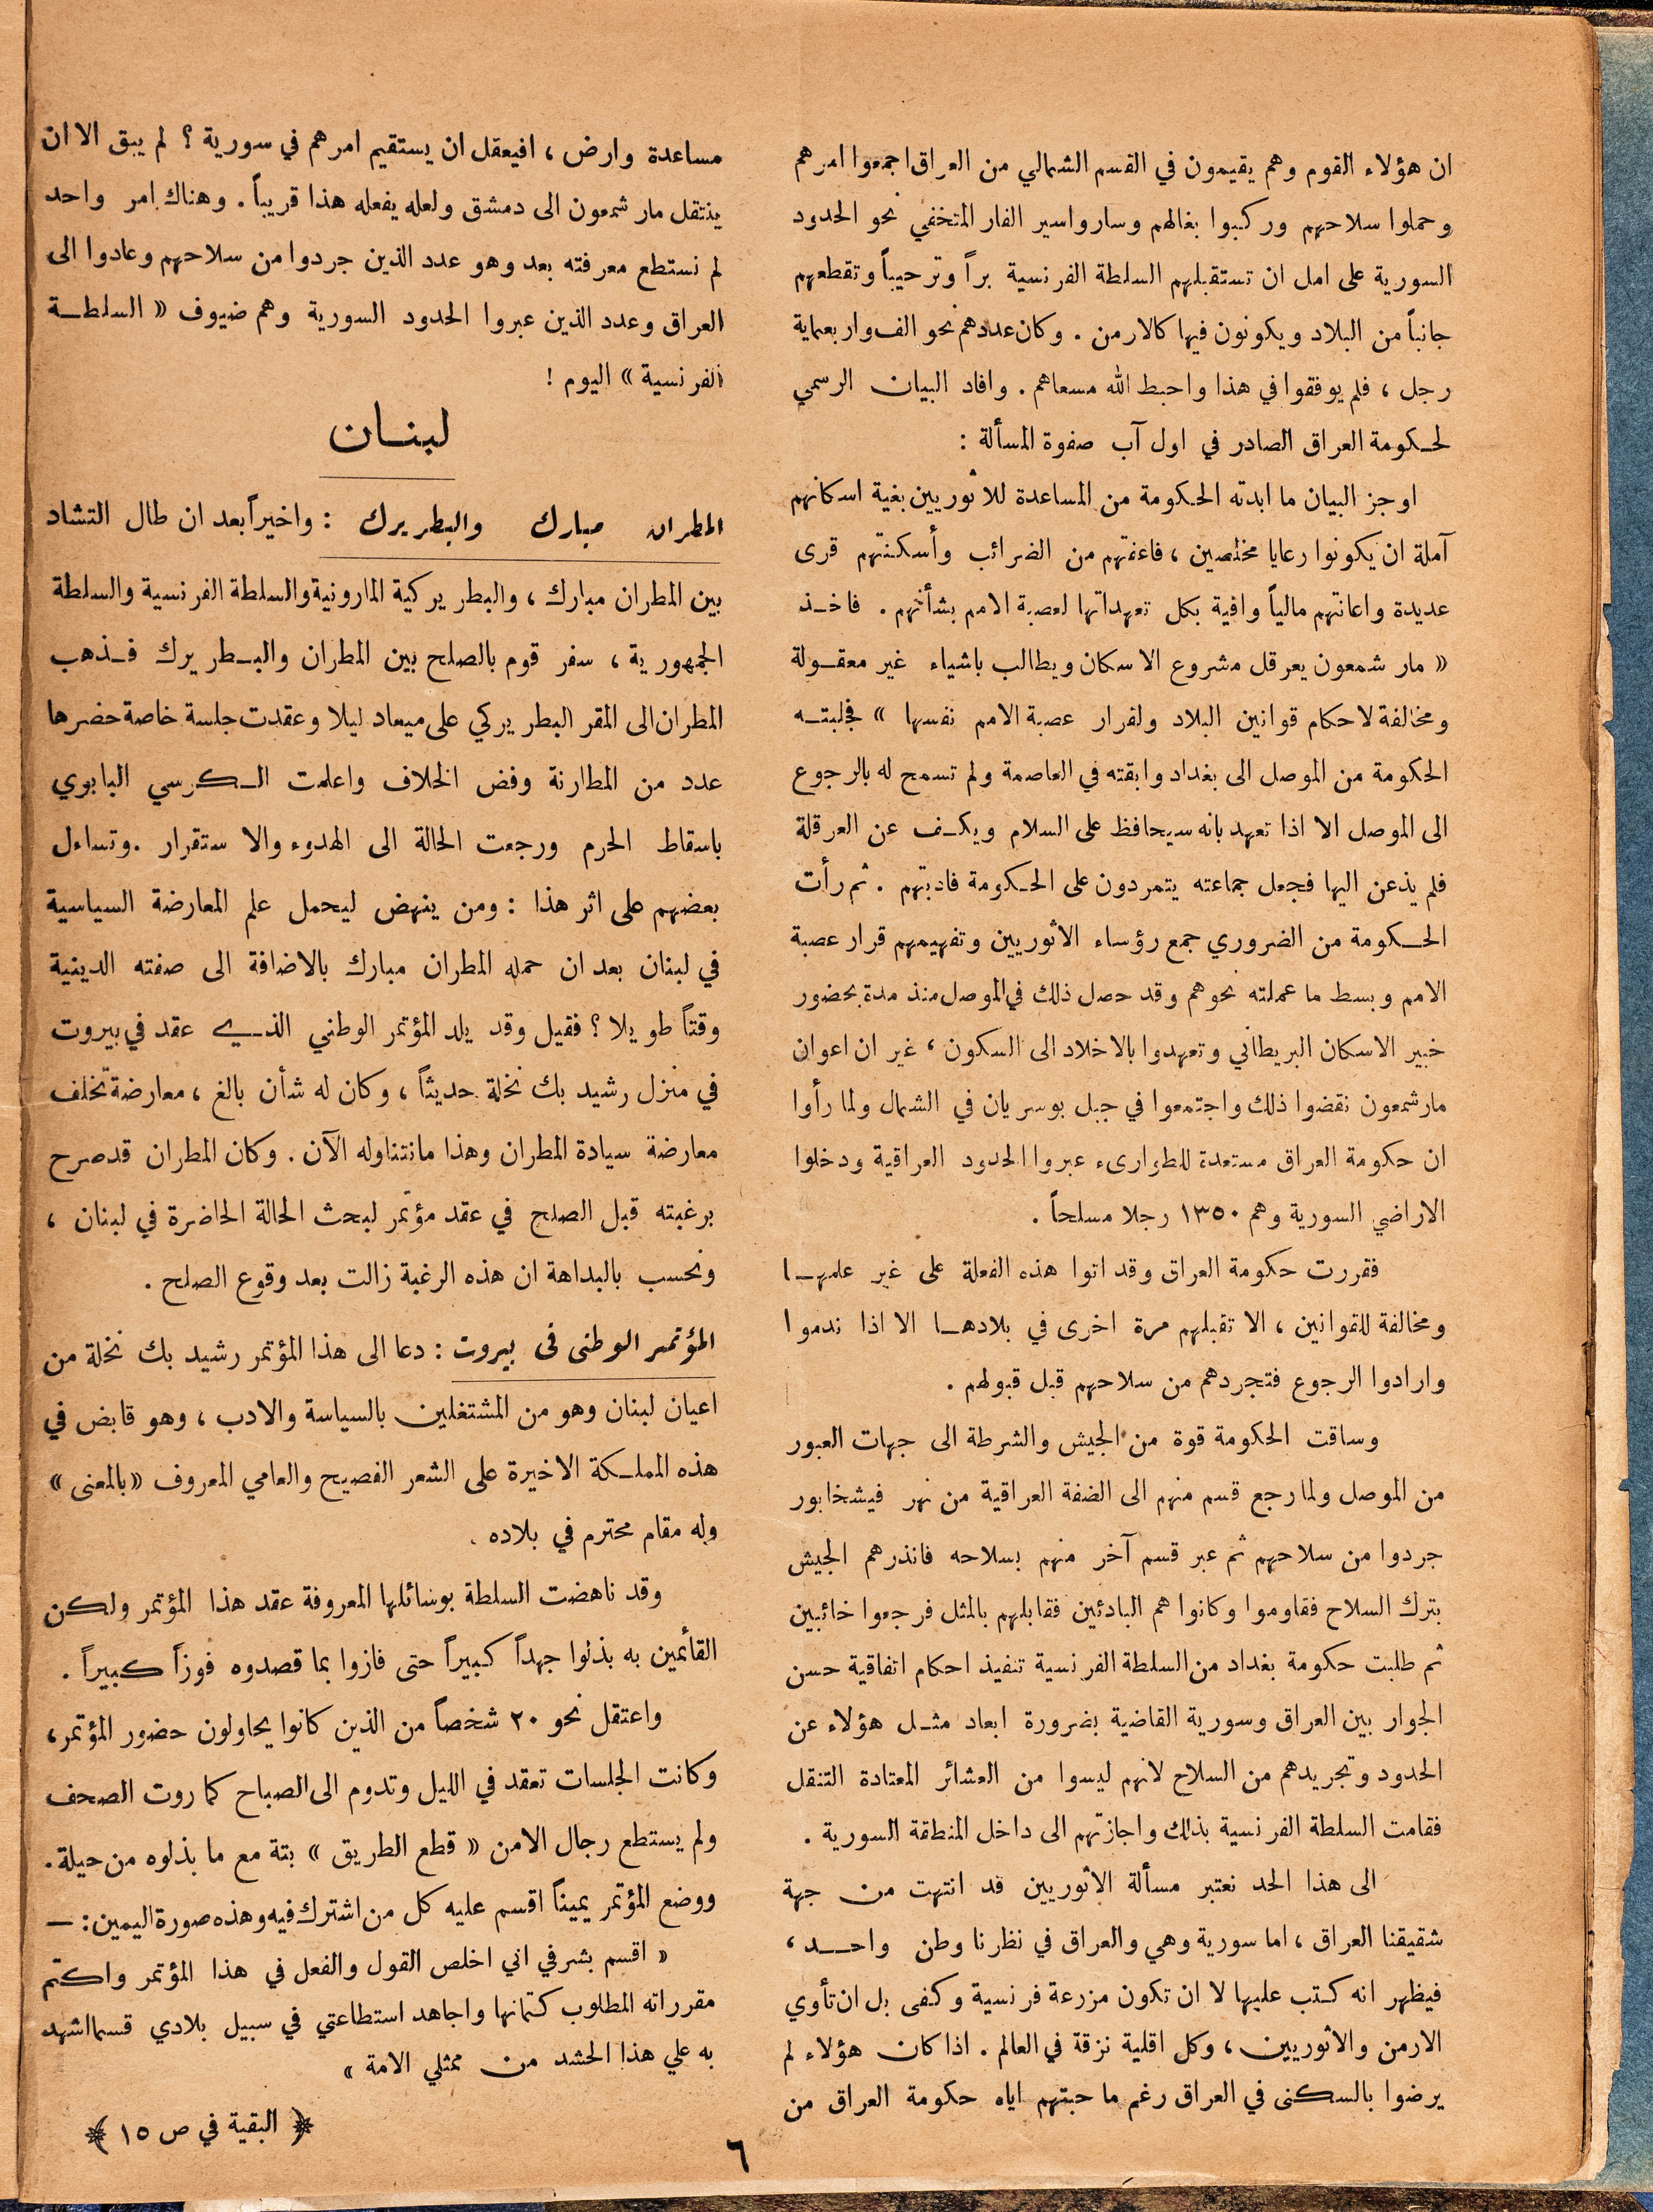 ان هؤلاء القوم وهم يقيمون في القسم الشمالي من العراق اجمعوا امرهم
وحملوا سلاحهم وركبوا بغالهم وساروا سير الفار المتخفي نحو الحدود
السورية على امل ان تستقبلهم السلطة الفرنسية براً وترحيباً وتقطعهم
جانباً من البلاد ويكونون فيها كالارمن . وكان عددهم نحو الف واربعماية
رجل ، فلم يوفقوا في هذا واحبط الله مسعاهم . وافاد البيان الرسمي
لحكومة العراق الصادر في اول آب صفوة المسألة :
اوجز البيان ما ابدته الحكومة من المساعدة للاثوريين بغية اسكانهم
آملة ان يكونوا رعايا مخلصين ، فاعفتهم من الضرائب وأسكنتهم قرى
عديدة واعانتهم مالياً وافية بكل تعهداتها لعصبة الامم بشأنهم . فاخذ
« مار شمعون يعرقل مشروع الاسكان ويطالب باشياء غير معقولة
ومخالفة لاحكام قوانين البلاد ولقرار عصبة الامم نفسها » فجلبته
الحكومة من الموصل الى بغداد وابقته في العاصمة ولم تسمح له بالرجوع
الى الموصل الا اذا تعهد بانه سيحافظ على السلام ويكف عن العرقلة
فلم يذعن اليها فجعل جماعته يتمردون على الحكومة فادبتهم . ثم رأت
الحكومة من الضروري جمع رؤساء الاثوريين وتفهيمهم قرار عصبة
الامم وبسط ما عملته نحوهم وقد حصل ذلك في الموصل منذ مدة بحضور
خبير الاسكان البريطاني وتعهدوا بالاخلاد الى السكون ، غير ان اعوان
مارشمعون نقضوا ذلك واجتمعوا في جبل بوسريان في الشمال ولما رأوا
ان حكومة العراق مستعدة للطوارىء عبروا الحدود العراقية ودخلوا
الاراضي السورية وهم ١٣٥٠ رجلا مسلحاً .
فقررت حكومة العراق وقد اتوا هذه الفعلة على غير علمها
ومخالفة للقوانين ، الا تقبلهم مرة اخرى في بلادها الا اذا ندموا
وارادوا الرجوع فتجردهم من سلاحهم قبل قبولهم .
وساقت الحكومة قوة من الجيش والشرطة الى جهات العبور
من الموصل ولما رجع قسم منهم الى الضفة العراقية من نهر فيشخابور
جردوا من سلاحهم ثم عبر قسم آخر منهم بسلاحه فانذرهم الجيش
بترك السلاح فقاوموا وكانوا هم البادئين فقابلهم بالمثل فرجعوا خائبين
ثم طلبت حكومة بغداد من السلطة الفرنسية تنفيذ احكام اتفاقية حسن
الجوار بين العراق وسورية القاضية بضرورة ابعاد مثل هؤلاء عن
الحدود وتجريدهم من السلاح لانهم ليسوا من العشائر المعتادة التنقل
فقامت السلطة الفرنسية بذلك واجازتهم الى داخل المنطقة السورية .
الى هذا الحد نعتبر مسألة الاثوريين قد انتهت من جهة
شقيقنا العراق ، اما سورية وهي والعراق في نظرنا وطن واحد ،
فيظهر انه كتب عليها لا ان تكون مزرعة فرنسية وكفى بل ان تأوي
الارمن والاثوريين ، وكل اقلية نزقة في العالم . اذا كان هؤلاء لم
يرضوا بالسكنى في العراق رغم ما حبتهم اياه حكومة العراق من
مساعدة وارض ، افيعقل ان يستقيم امرهم في سورية ؟ لم يبق الا ان
ينتقل مار شمعون الى دمشق ولعله يفعله هذا قريباً . وهناك امر واحد
لم نستطع معرفته بعد وهو عدد الذين جردوا من سلاحهم وعادوا الى
العراق وعدد الذين عبروا الحدود السورية وهم ضيوف « السلطة
الفرنسية » اليوم !
لبنان
المطران مبارك والبطريرك : واخيراً بعد ان طال التشاد
بين المطران مبارك ، والبطريركية المارونية والسلطة الفرنسية والسلطة
الجمهورية ، سفر قوم بالصلح بين المطران والبطريرك فذهب
المطران الى المقر البطريركي على ميعاد ليلا وعقدت جلسة خاصة حضرها
عدد من المطارنة وفض الخلاف واعلمت الكرسي البابوي
باسقاط الحرم ورجعت الحالة الى الهدوء والاستقرار . وتساءل
بعضهم على اثر هذا : ومن ينهض ليحمل علم المعارضة السياسية
في لبنان بعد ان حمله المطران مبارك بالاضافة الى صفته الدينية
وقتاً طويلا ؟ فقيل وقد يلد المؤتمر الوطني الذي عقد في بيروت
في منزل رشيد بك نخلة حديثاً ، وكان له شأن بالغ ، معارضة تخلف
معارضة سيادة المطران وهذا مانتناوله الآن . وكان المطران قد صرح
برغبته قبل الصلح في عقد مؤتمر لبحث الحالة الحاضرة في لبنان ،
ونحسب بالبداهة ان هذه الرغبة زالت بعد وقوع الصلح .
المؤتمر الوطنى فى بيروت : دعا الى هذا المؤتمر رشيد بك نخلة من
اعيان لبنان وهو من المشتغلين بالسياسة والادب ، وهو قابض في
هذه المملكة الاخيرة على الشعر الفصيح والعامي المعروف « بالمعنى »
وله مقام محترم في بلاده .
وقد ناهضت السلطة بوسائلها المعروفة عقد هذا المؤتمر ولكن
القائمين به بذلوا جهداً كبيراً حتى فازوا بما قصدوه فوزاً كبيراً .
واعتقل نحو ٢٠ شخصاً من الذين كانوا يحاولون حضور المؤتمر ،
وكانت الجلسات تعقد في الليل وتدوم الى الصباح كما روت الصحف
ولم يستطع رجال الامن « قطع الطريق » بتة مع ما بذلوه من حيلة .
ووضع المؤتمر يميناً اقسم عليه كل من اشترك فيه وهذه صورة اليمين : —
« اقسم بشرفي اني اخلص القول والفعل في هذا المؤتمر واكتم
مقرراته المطلوب كتمانها واجاهد استطاعتي في سبيل بلادي قسما اشهد
به علي هذا الحشد من ممثلي الامة »
﴿ البقية في ص ١٥ ﴾
٦